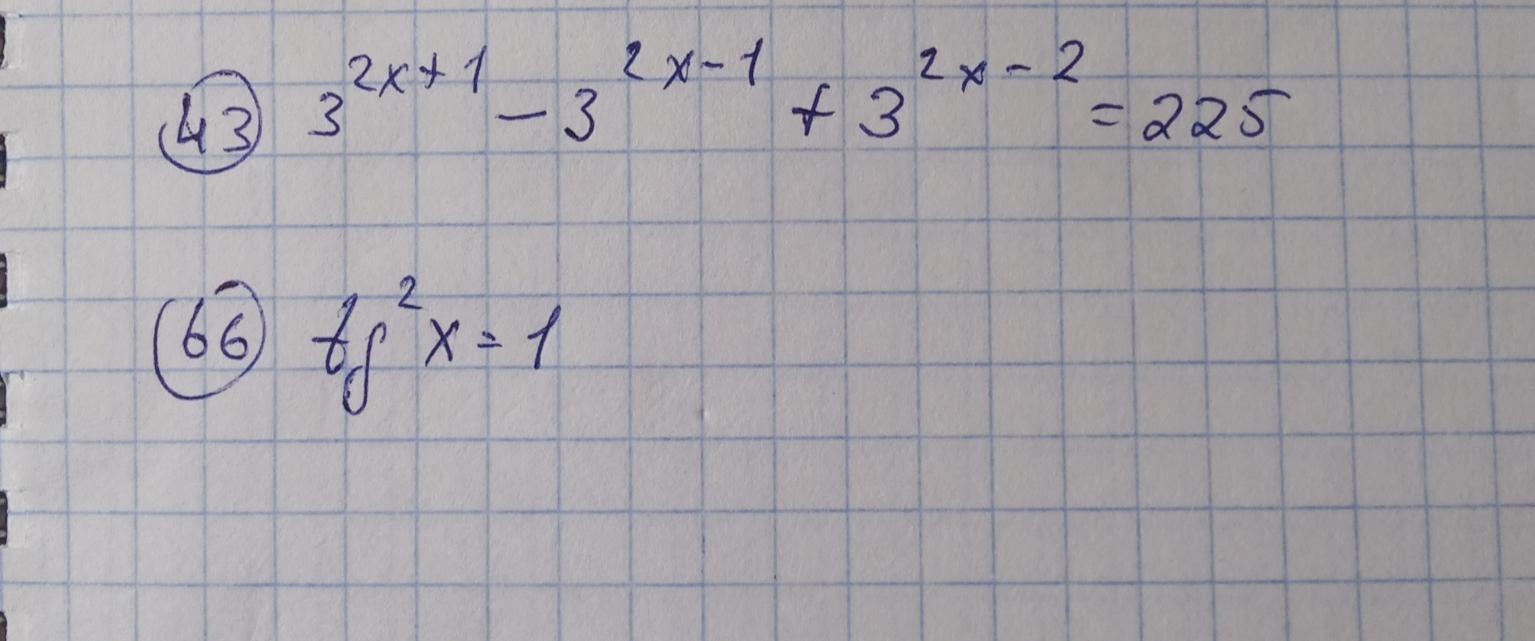 43 3^{2x+1} - 3^{2x-1} + 3^{2x-2} = 225
66 tg^2 x = 1